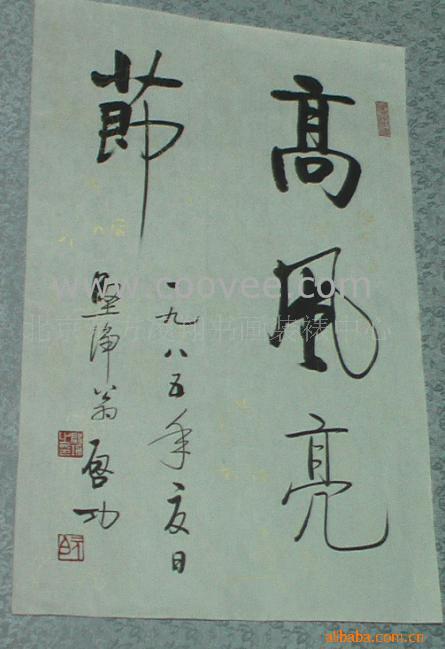 高風亮
節
一九八五年夏日
坚净翁启功
www.coovee.com
书画装裱中心
alibaba.com.cn